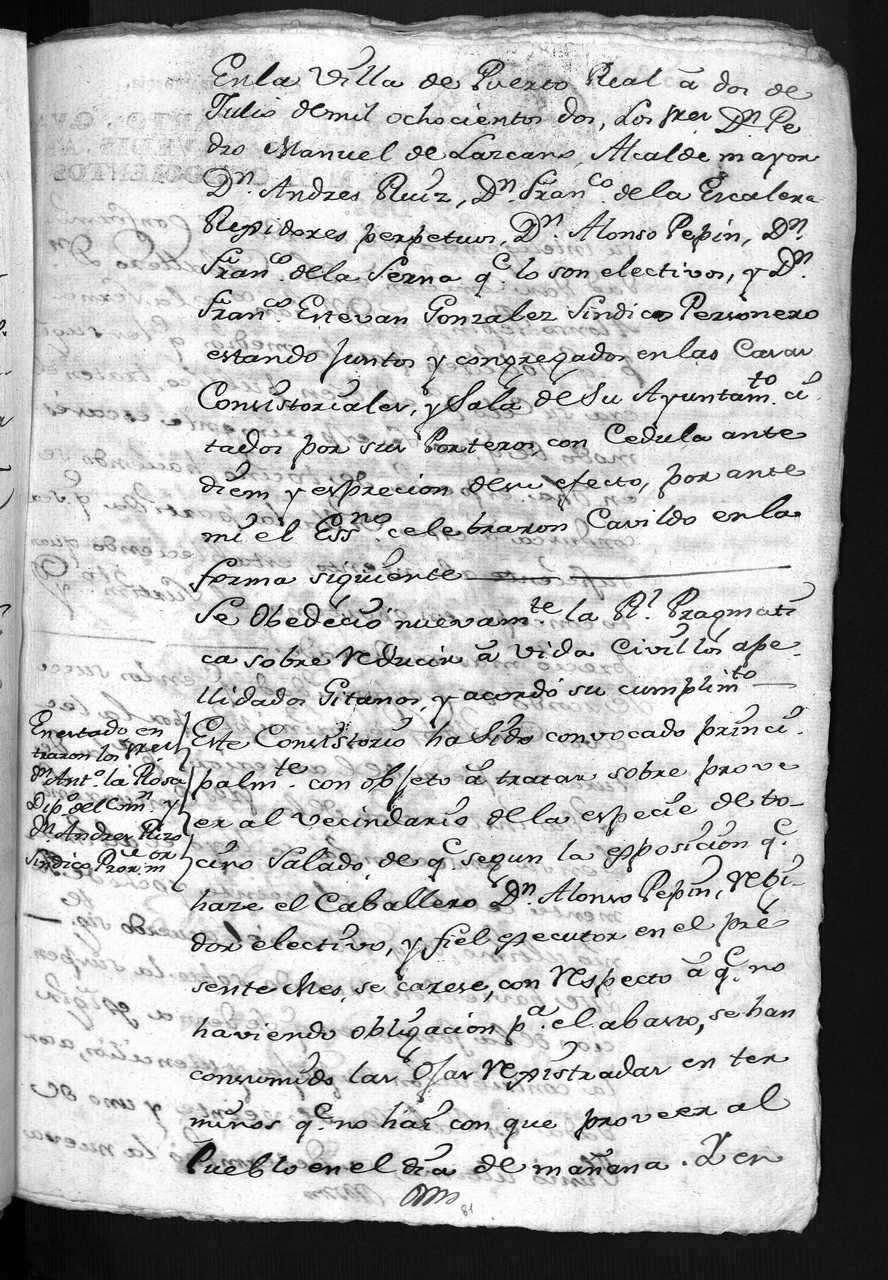 En la Villa de Puerto Real â dos de
Julio de mil ochocientos dos, Los Sres Dn. Pe
dro Manuel de Lazcano, Alcalde mayor
Dn. Andres Ruiz, Dn. Franco. de la Escalera
Regidores perpetuos, Dn. Alonso Pepin, Dn.
Franco. de la Serna qe. lo son electivos, y Dn.
Franco. Estevan Gonzalez Sindico Personero
estando juntos y congregados en las Casas
Consistoriales, y Sala de Su Ayuntamto. ci
tados por sus Porteros con Cedula ante
diem y esprecion de su efecto, por ante
mi el Essno. celebraron Cavildo en la
forma siguiente
Se Obedeció nuevamte. la Rl. Pragmati
ca sobre reducir â vida Civil los ape-
llidados Gitanos, y acordó su cumplimto
Este Consistorio ha sido convocado princi
palmte. con objeto â tratar sobre prove
er al vecindario de la especie de to-
cino Salado, de qe. segun la exposicion qe.
haze el Caballero Dn. Alonso Pepin, Regi-
dor electivo, y fiel executor en el pre
sente Mes, se carese, con respecto â qe. no
haviendo obligacion pa. el abasto, se han
consumido las Ojas registradas en ter
minos qe. no hai con que proveer al
Pueblo en el dia de mañana. Y en
En estado en
traron los Sres
Dn. Anto. la Rosa
Dipo. del Comn. y
Dn. Andres Rizo
Sindico Procuor
81